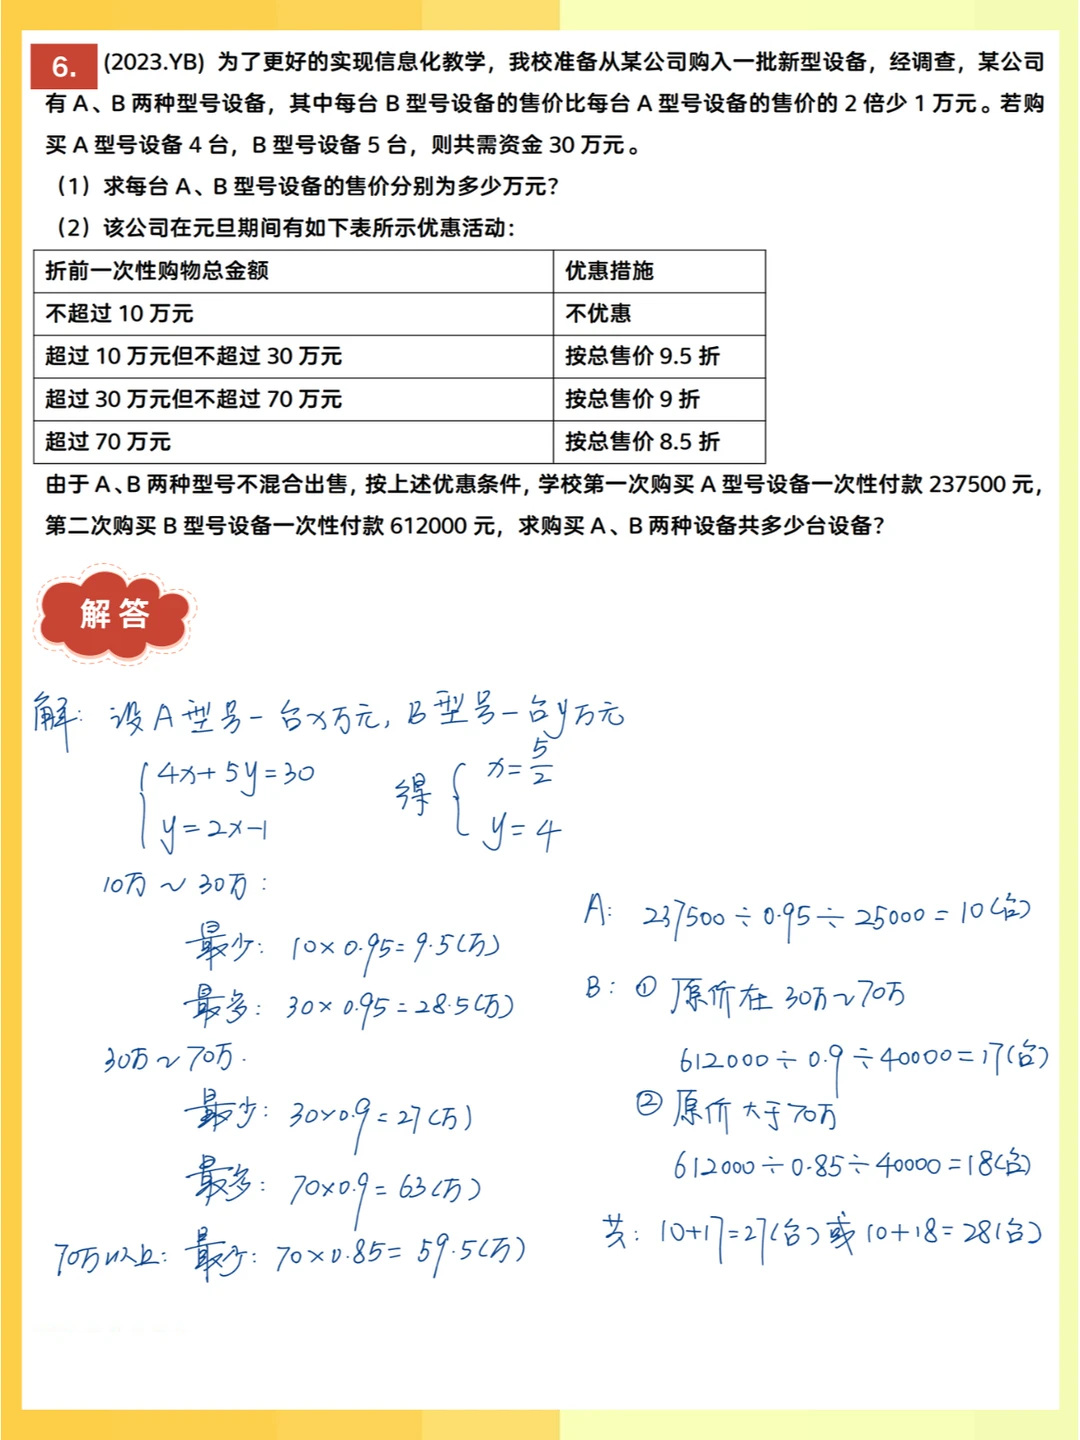 6. (2023.YB) 为了更好的实现信息化教学，我校准备从某公司购入一批新型设备，经调查，某公司
有 A、B 两种型号设备，其中每台 B 型号设备的售价比每台 A 型号设备的售价的 2 倍少 1 万元。若购
买 A 型号设备 4 台，B 型号设备 5 台，则共需资金 30 万元。
（1）求每台 A、B 型号设备的售价分别为多少万元？
（2）该公司在元旦期间有如下表所示优惠活动：
折前一次性购物总金额 优惠措施
不超过 10 万元 不优惠
超过 10 万元但不超过 30 万元 按总售价 9.5 折
超过 30 万元但不超过 70 万元 按总售价 9 折
超过 70 万元 按总售价 8.5 折
由于 A、B 两种型号不混合出售，按上述优惠条件，学校第一次购买 A 型号设备一次性付款 237500 元，
第二次购买 B 型号设备一次性付款 612000 元，求购买 A、B 两种设备共多少台设备？
解答
解：设A型号一台x万元，B型号一台y万元
{4x+5y=30 得 {x=5/2
y=2x-1 y=4
10万～30万：
最少：10×0.95=9.5(万)
最多：30×0.95=28.5(万)
30万～70万．
最少：30×0.9=27(万)
最多：70×0.9=63(万)
70万以上：最少：70×0.85=59.5(万)
A：237500÷0.95÷25000=10(台)
B：① 原价在30万～70万
612000÷0.9÷40000=17(台)
② 原价大于70万
612000÷0.85÷40000=18(台)
共：10+17=27(台)或10+18=28(台)